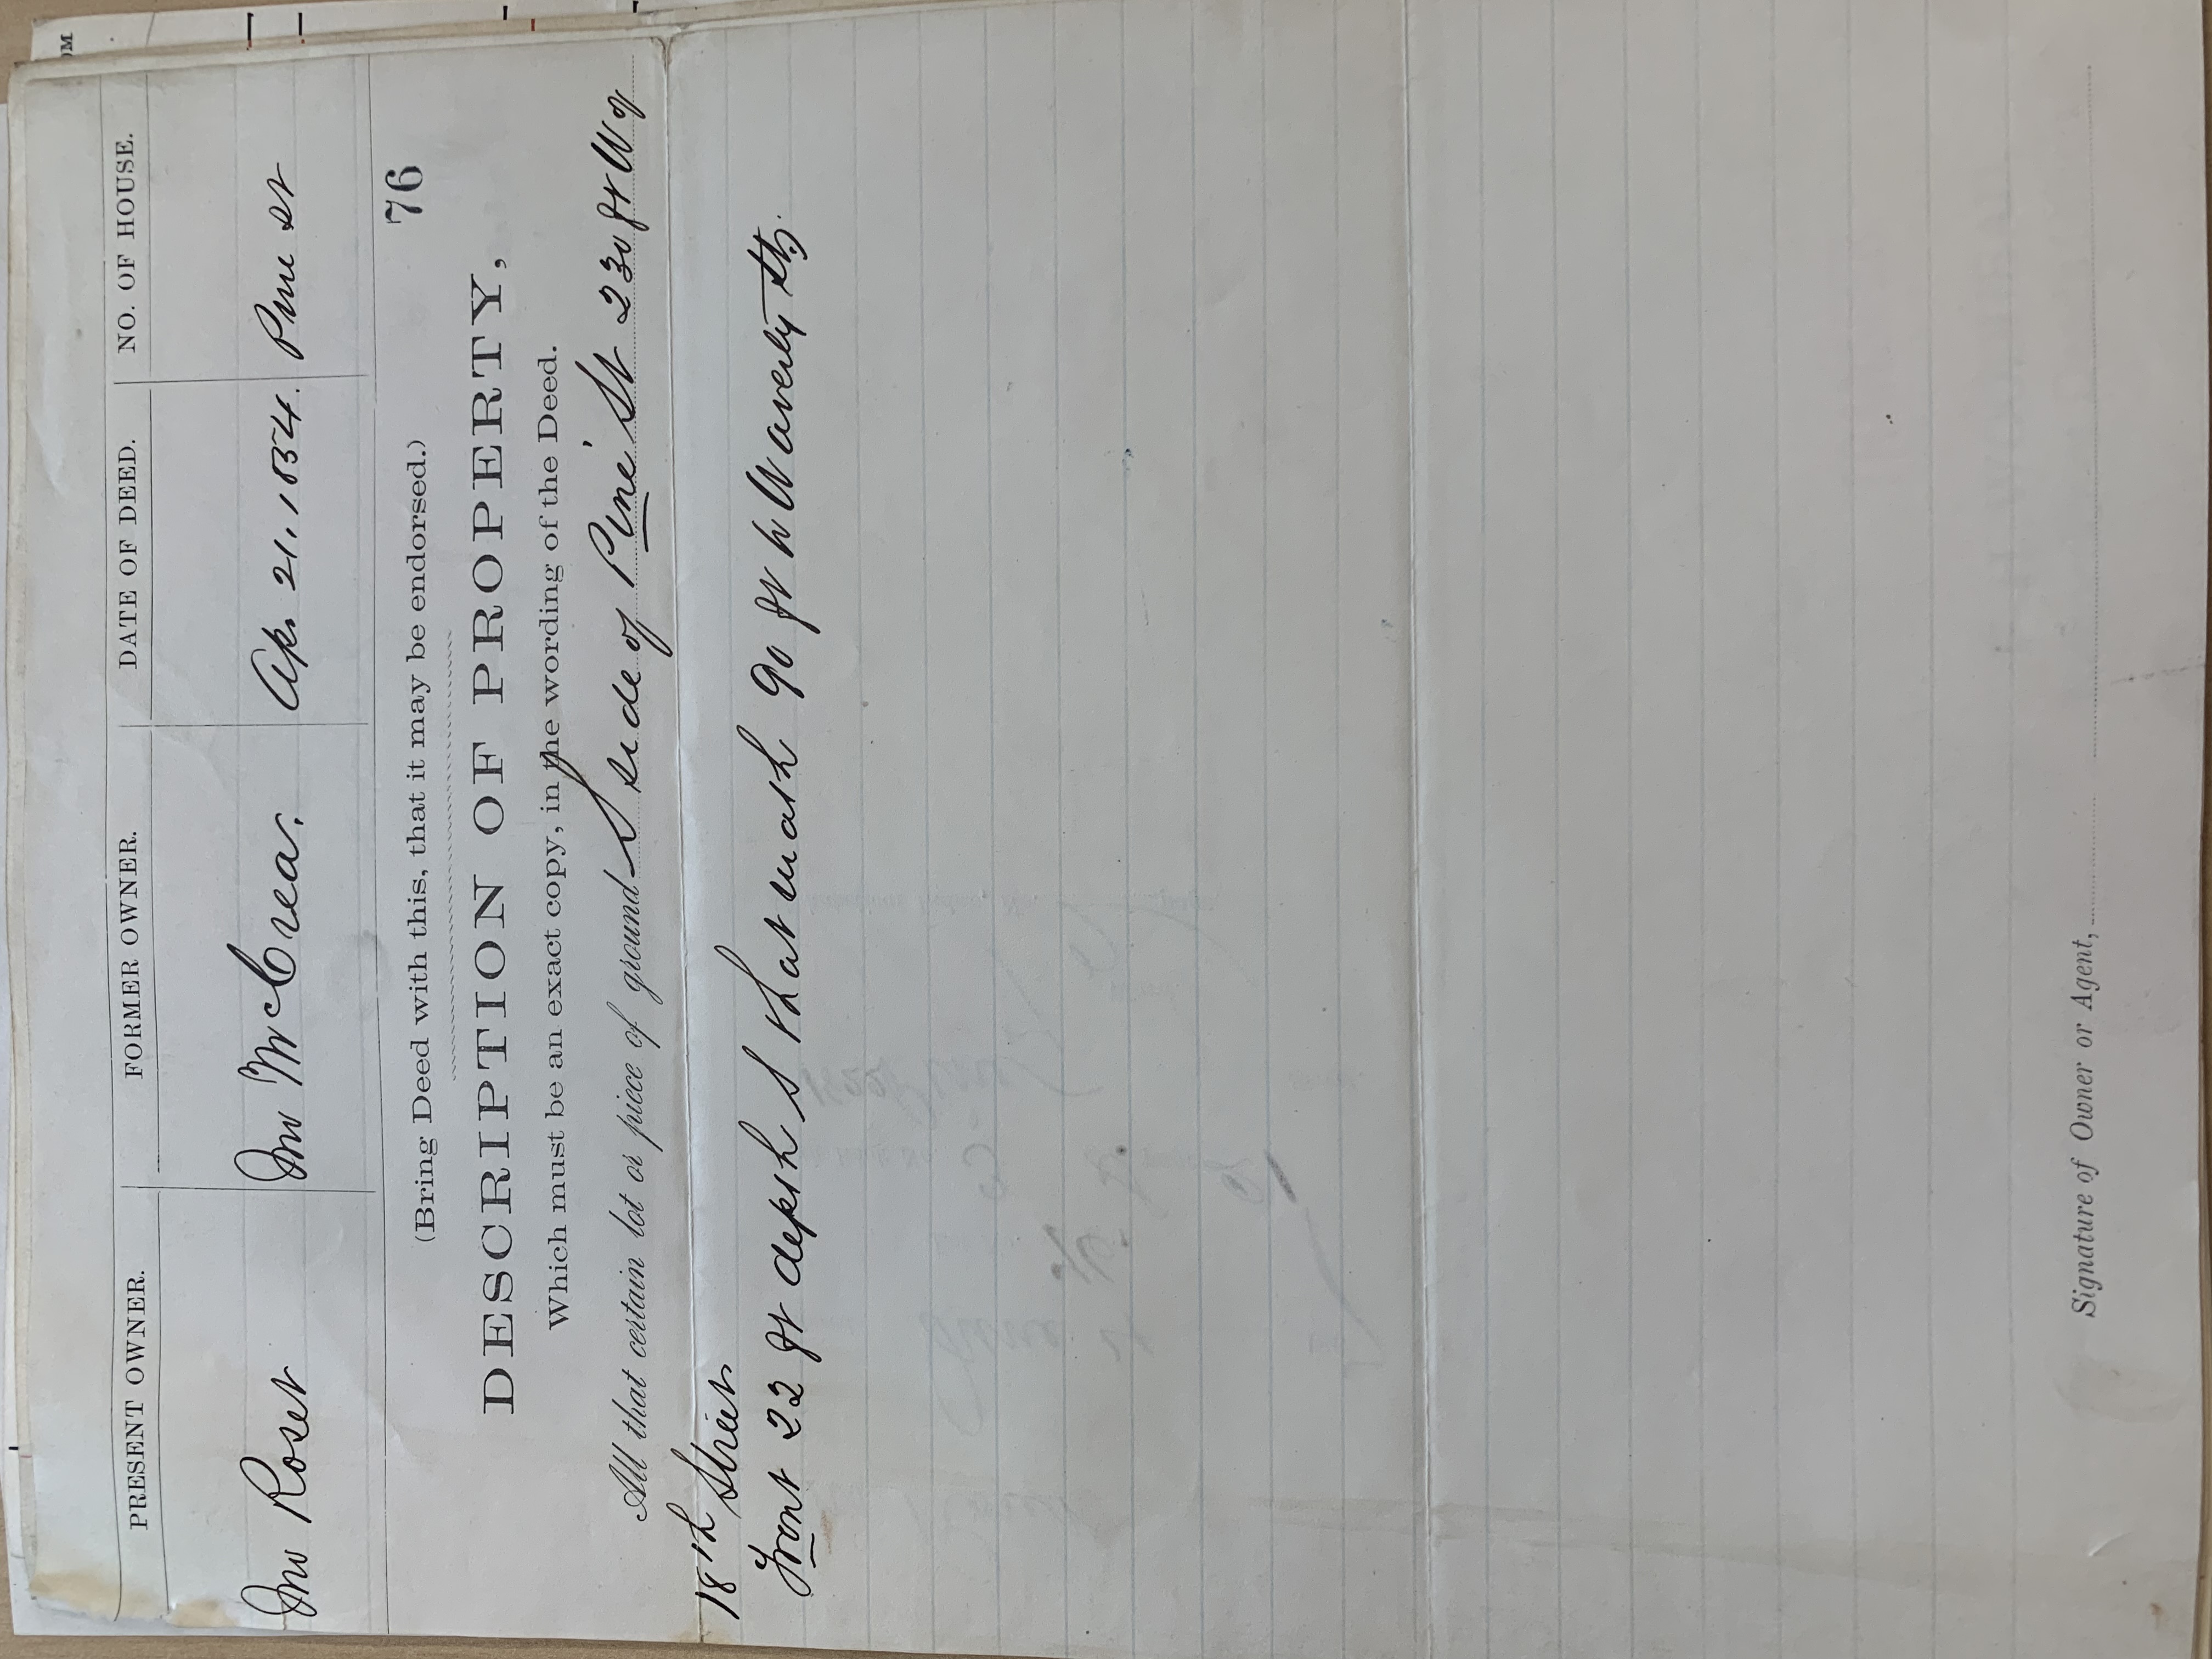 PRESENT OWNER. FORMER OWNER. DATE OF DEED. NO. OF HOUSE.
Jno Roset Jno McCrea. Ap. 21, 1854. Pine St
76
(Bring Deed with this, that it may be endorsed.)
DESCRIPTION OF PROPERTY,
Which must be an exact copy, in the wording of the Deed.
All that certain lot or piece of ground S side of Pine St 230 ft W of
18th Street
Front 22 ft depth S that width 90 ft to Waverly St,
Signature of Owner or Agent,